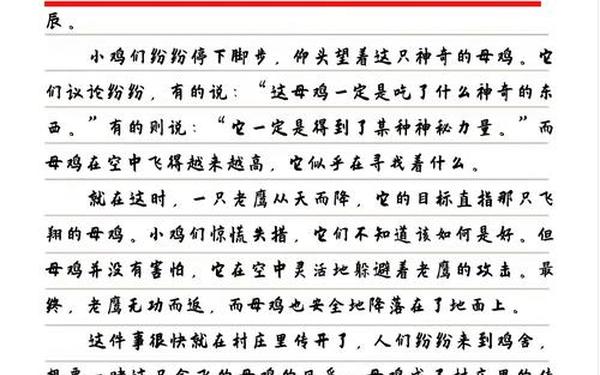 辰。
小鸡们纷纷停下脚步，仰头望着这只神奇的母鸡。它
们议论纷纷，有的说：“这母鸡一定是吃了什么神奇的东
西。”有的则说：“它一定是得到了某种神秘力量。”而
母鸡在空中飞得越来越高，它似乎在寻找着什么。
就在这时，一只老鹰从天而降，它的目标直指那只飞
翔的母鸡。小鸡们惊慌失措，它们不知道该如何是好。但
母鸡并没有害怕，它在空中灵活地躲避着老鹰的攻击。最
终，老鹰无功而返，而母鸡也安全地降落在了地面上。
这件事很快就在村庄里传开了，人们纷纷来到鸡舍，
想要一睹这只会飞的母鸡的风采。母鸡成了村庄里的传